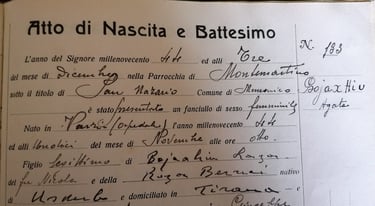 Atto di Nascita e Battesimo
L'anno del Signore millenovecento 44 ed alli Tre
N. 133
del mese di dicembre nella Parrocchia di Montemartino
sotto il titolo di San Nazaro Comune di Menconico
Bojaxhiu
Agata
è stato presentato un fanciullo di sesso femminile
Nato in Varzi (ospedale) l'anno millenovecento 44
ed alli undici del mese di Novembre alle ore otto
Figlio legittimo di
del fu Nicola e della nativo
di e domiciliato in Tirana